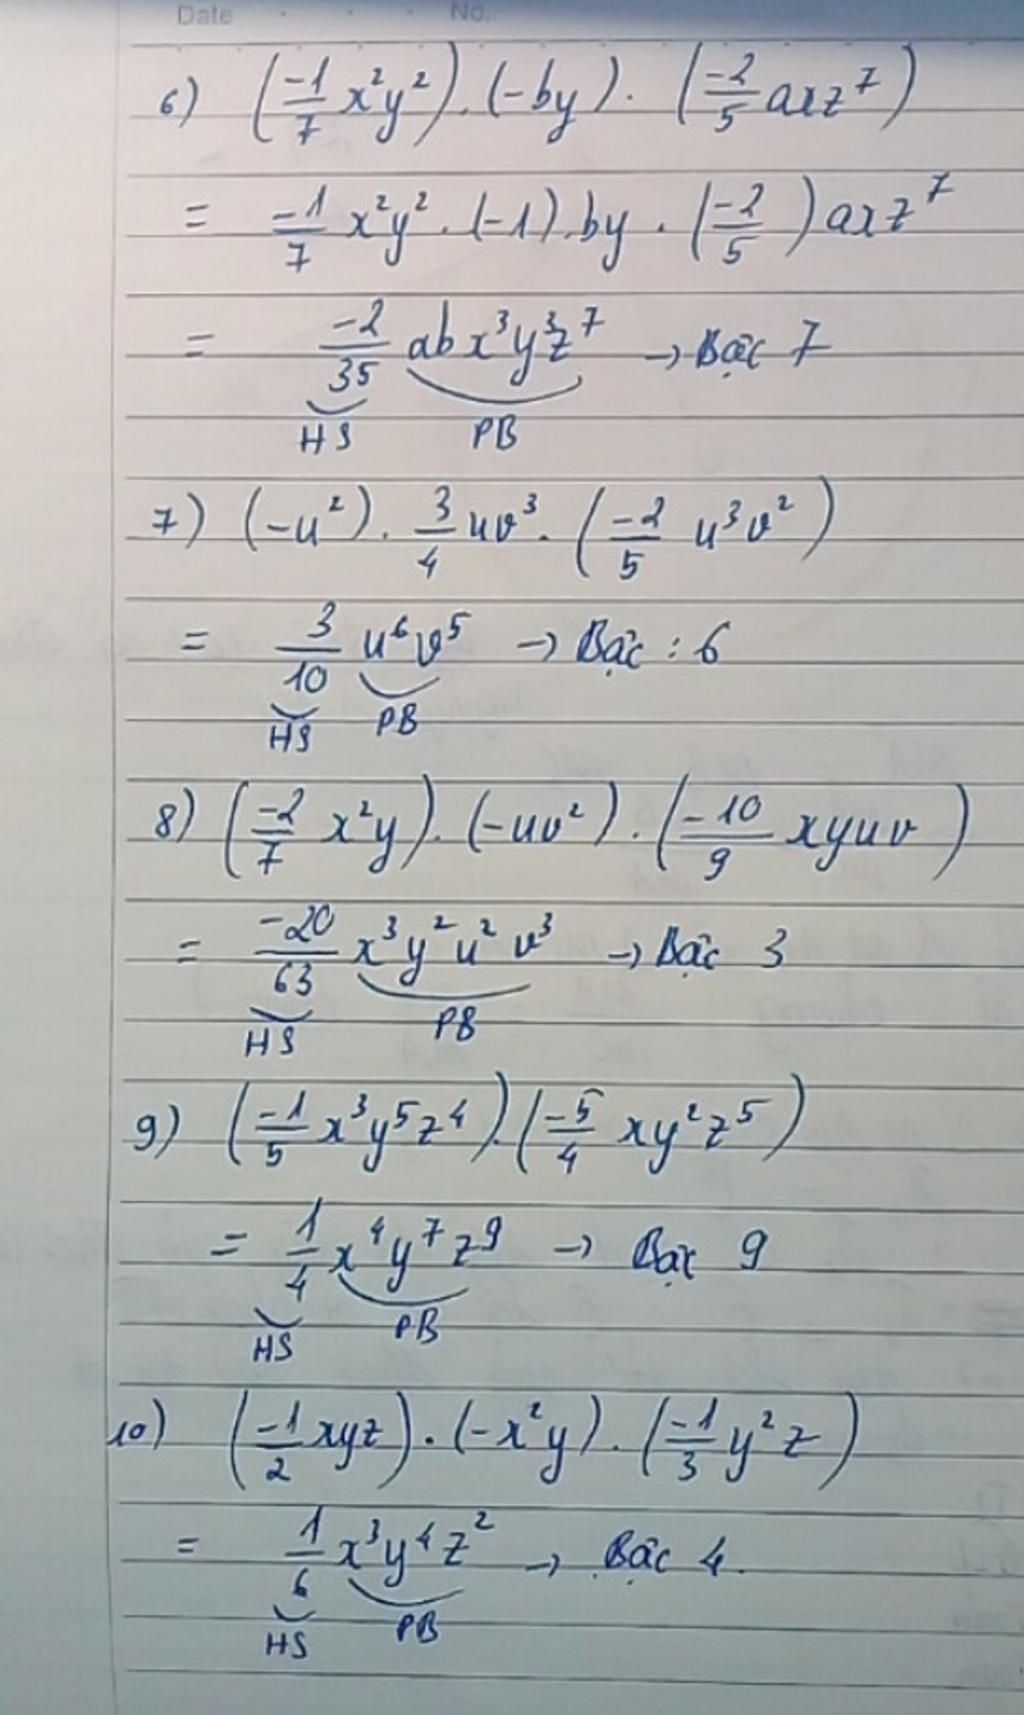 Date No.
6) (-1/7 x²y²) . (-by) . (-2/5 axz⁷)
= -1/7 x²y² . (-1) . by . (-2/5) axz⁷
= -2/35 abx³y³z⁷ → Bậc 7
HS PB
7) (-u²) . 3/4 uv³ . (-2/5 u³v²)
= 3/10 u⁶v⁵ → Bậc : 6
HS PB
8) (-2/7 x²y) . (-uv²) . (-10/9 xyuv)
= -20/63 x³y²u²v³ → Bậc 3
HS PB
9) (-1/5 x³y⁵z⁴) . (-5/4 xy²z⁵)
= 1/4 x⁴y⁷z⁹ → Bậc 9
HS PB
10) (-1/2 xyz) . (-x²y) . (-1/3 y²z)
= 1/6 x³y⁴z² → Bậc 4.
HS PB